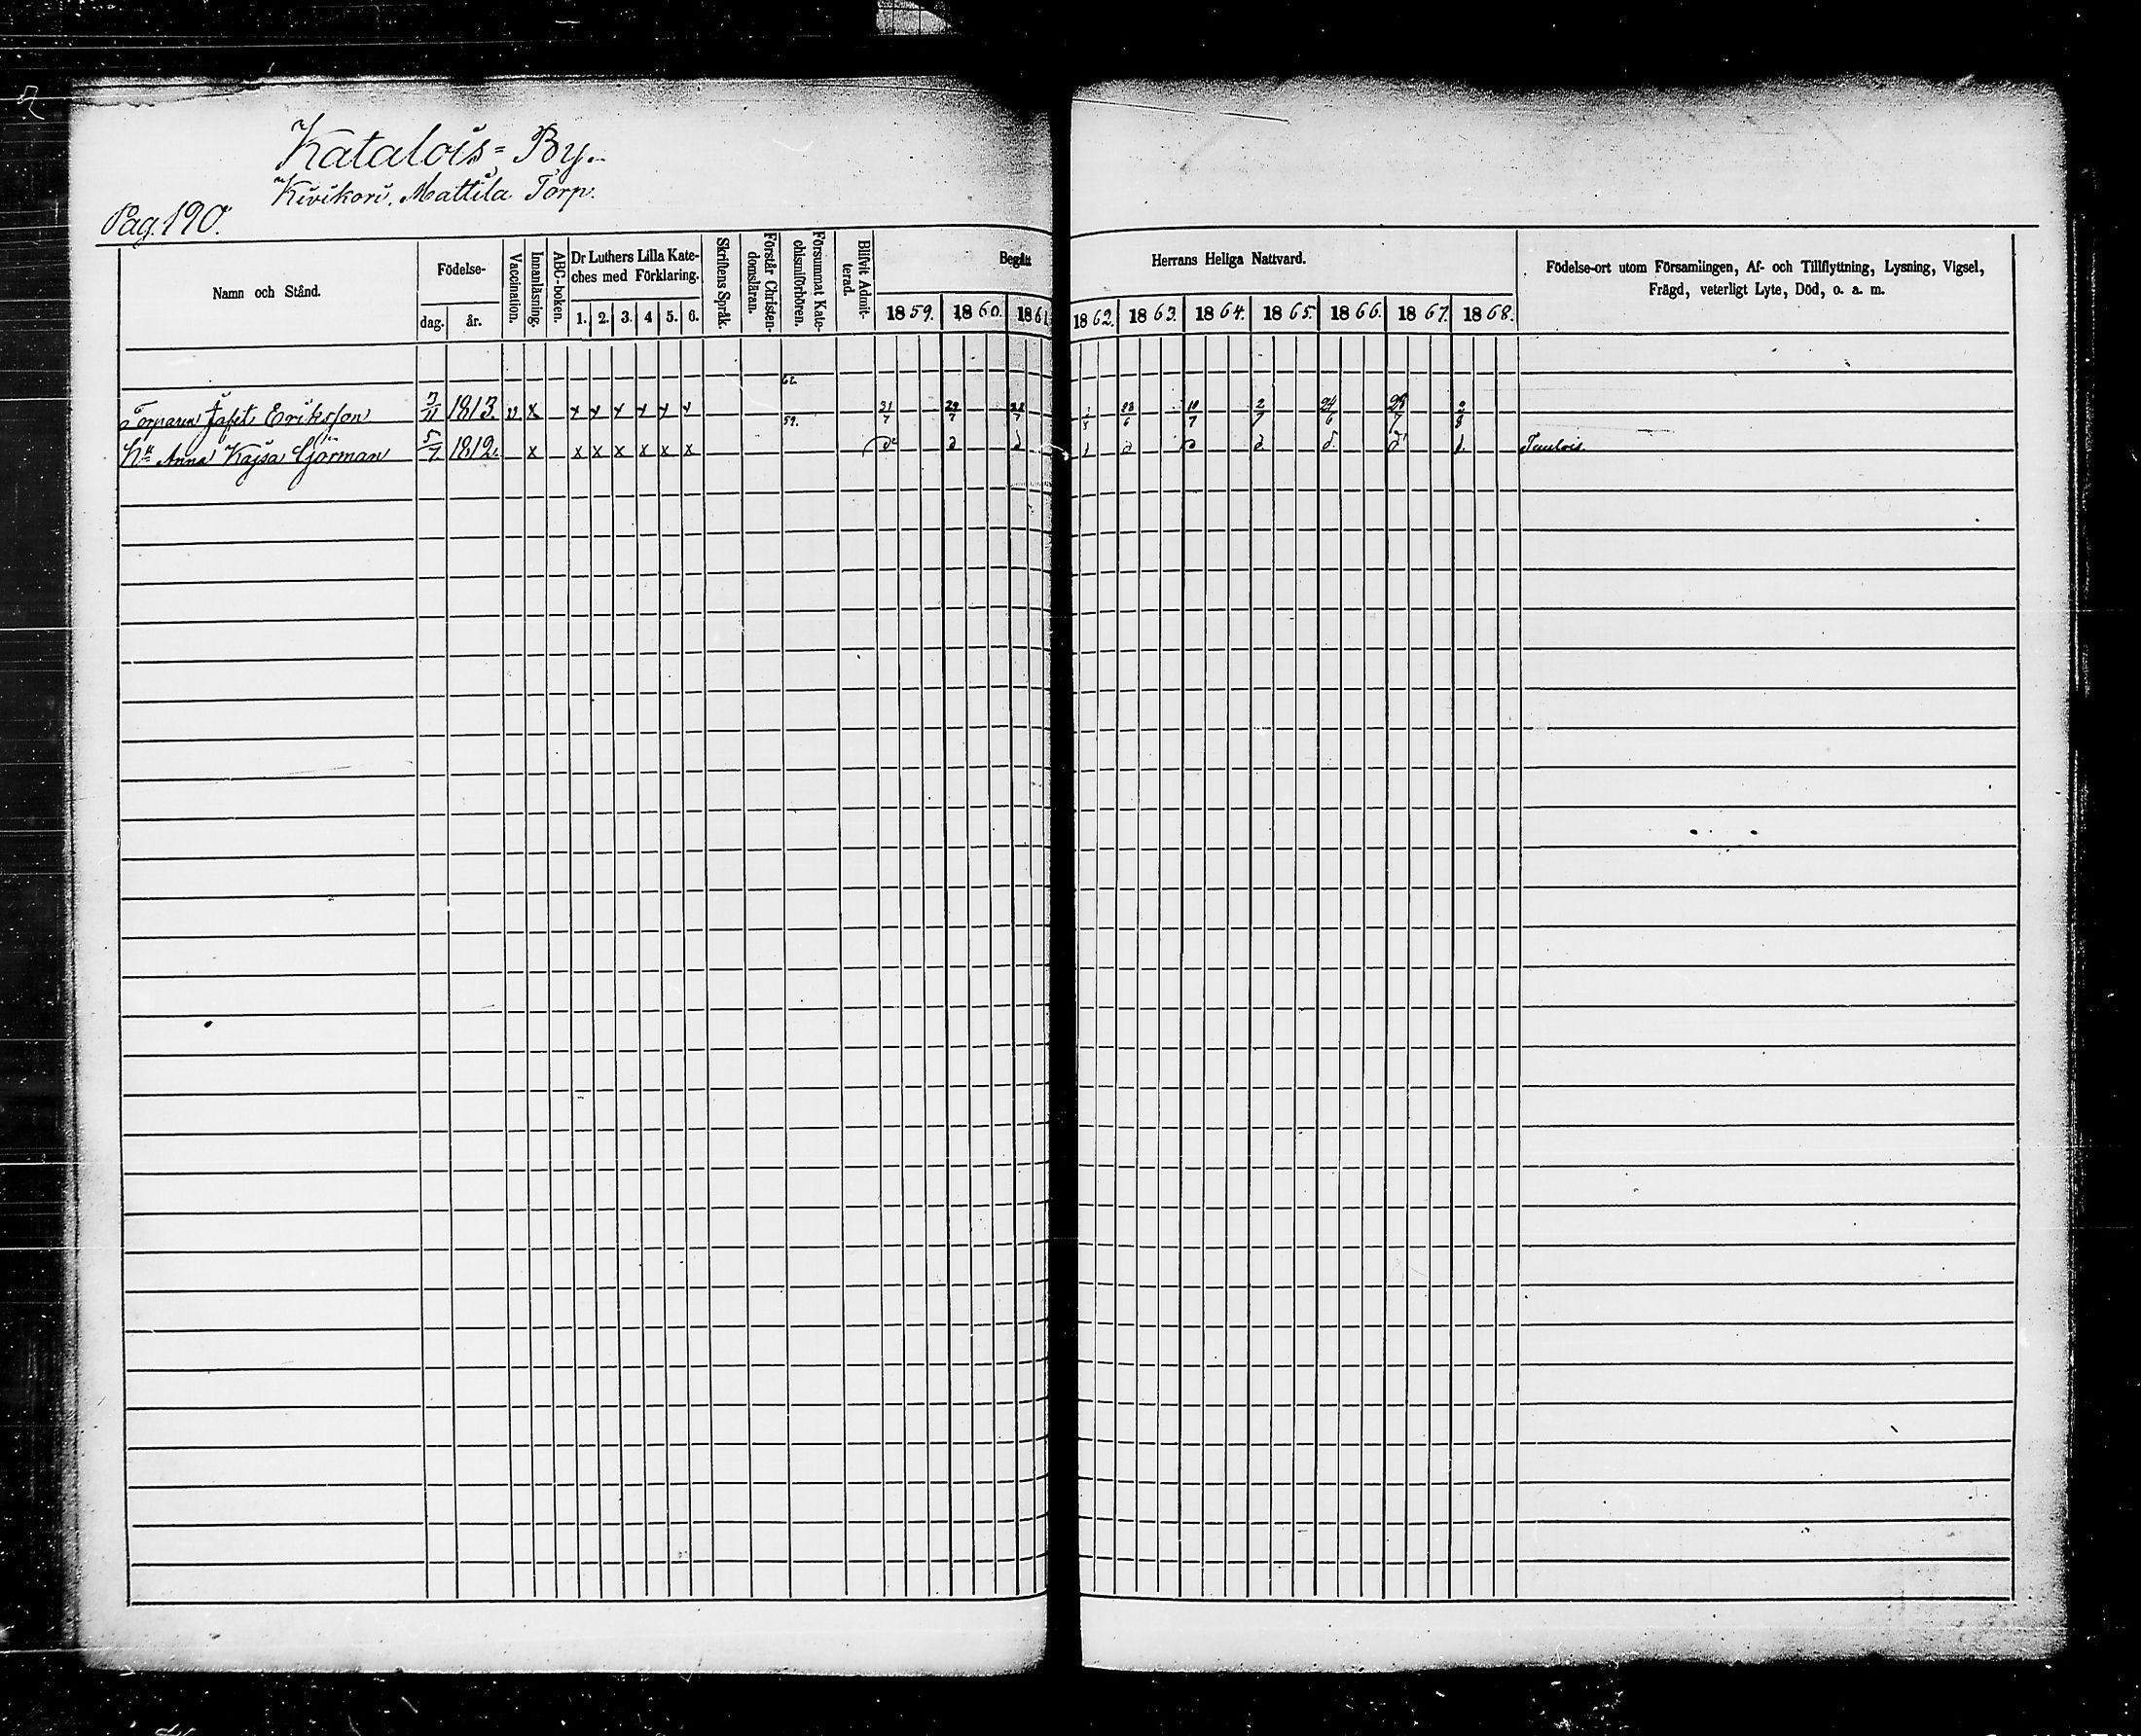 Katalois= By.
Kivikori, Mattila Torp.
Pag. 190.
Namn och Stånd.
Födelse-
dag. år.
Vaccination.
Innanläsning.
ABC-boken.
Dr Luthers Lilla Kate-
ches med Förklaring.
1. 2. 3. 4 5. 6.
Skriftens Språk.
Förstår Christen-
domsläran.
Försummat Kate-
chismiförhören.
Blifvit Admit-
terad.
Begått Herrans Heliga Nattvard.
1859. 1860. 1861 1862. 1863. 1864. 1865. 1866. 1867. 1868.
Födelse-ort utom Församlingen, Af- och Tillflyttning, Lysning, Vigsel,
Frägd, veterligt Lyte, Död, o. a. m.
62.
Torparen Jafet Eriksson 7/11 1813. v x x x x x x x 59. 31/7 29/7 28/6 10/7 2/7 24/6 28/7 2/8
Hu Anna Kajsa Görman 5/7 1812. x x x x x x x d d d d d d d d d d. Tuulois.